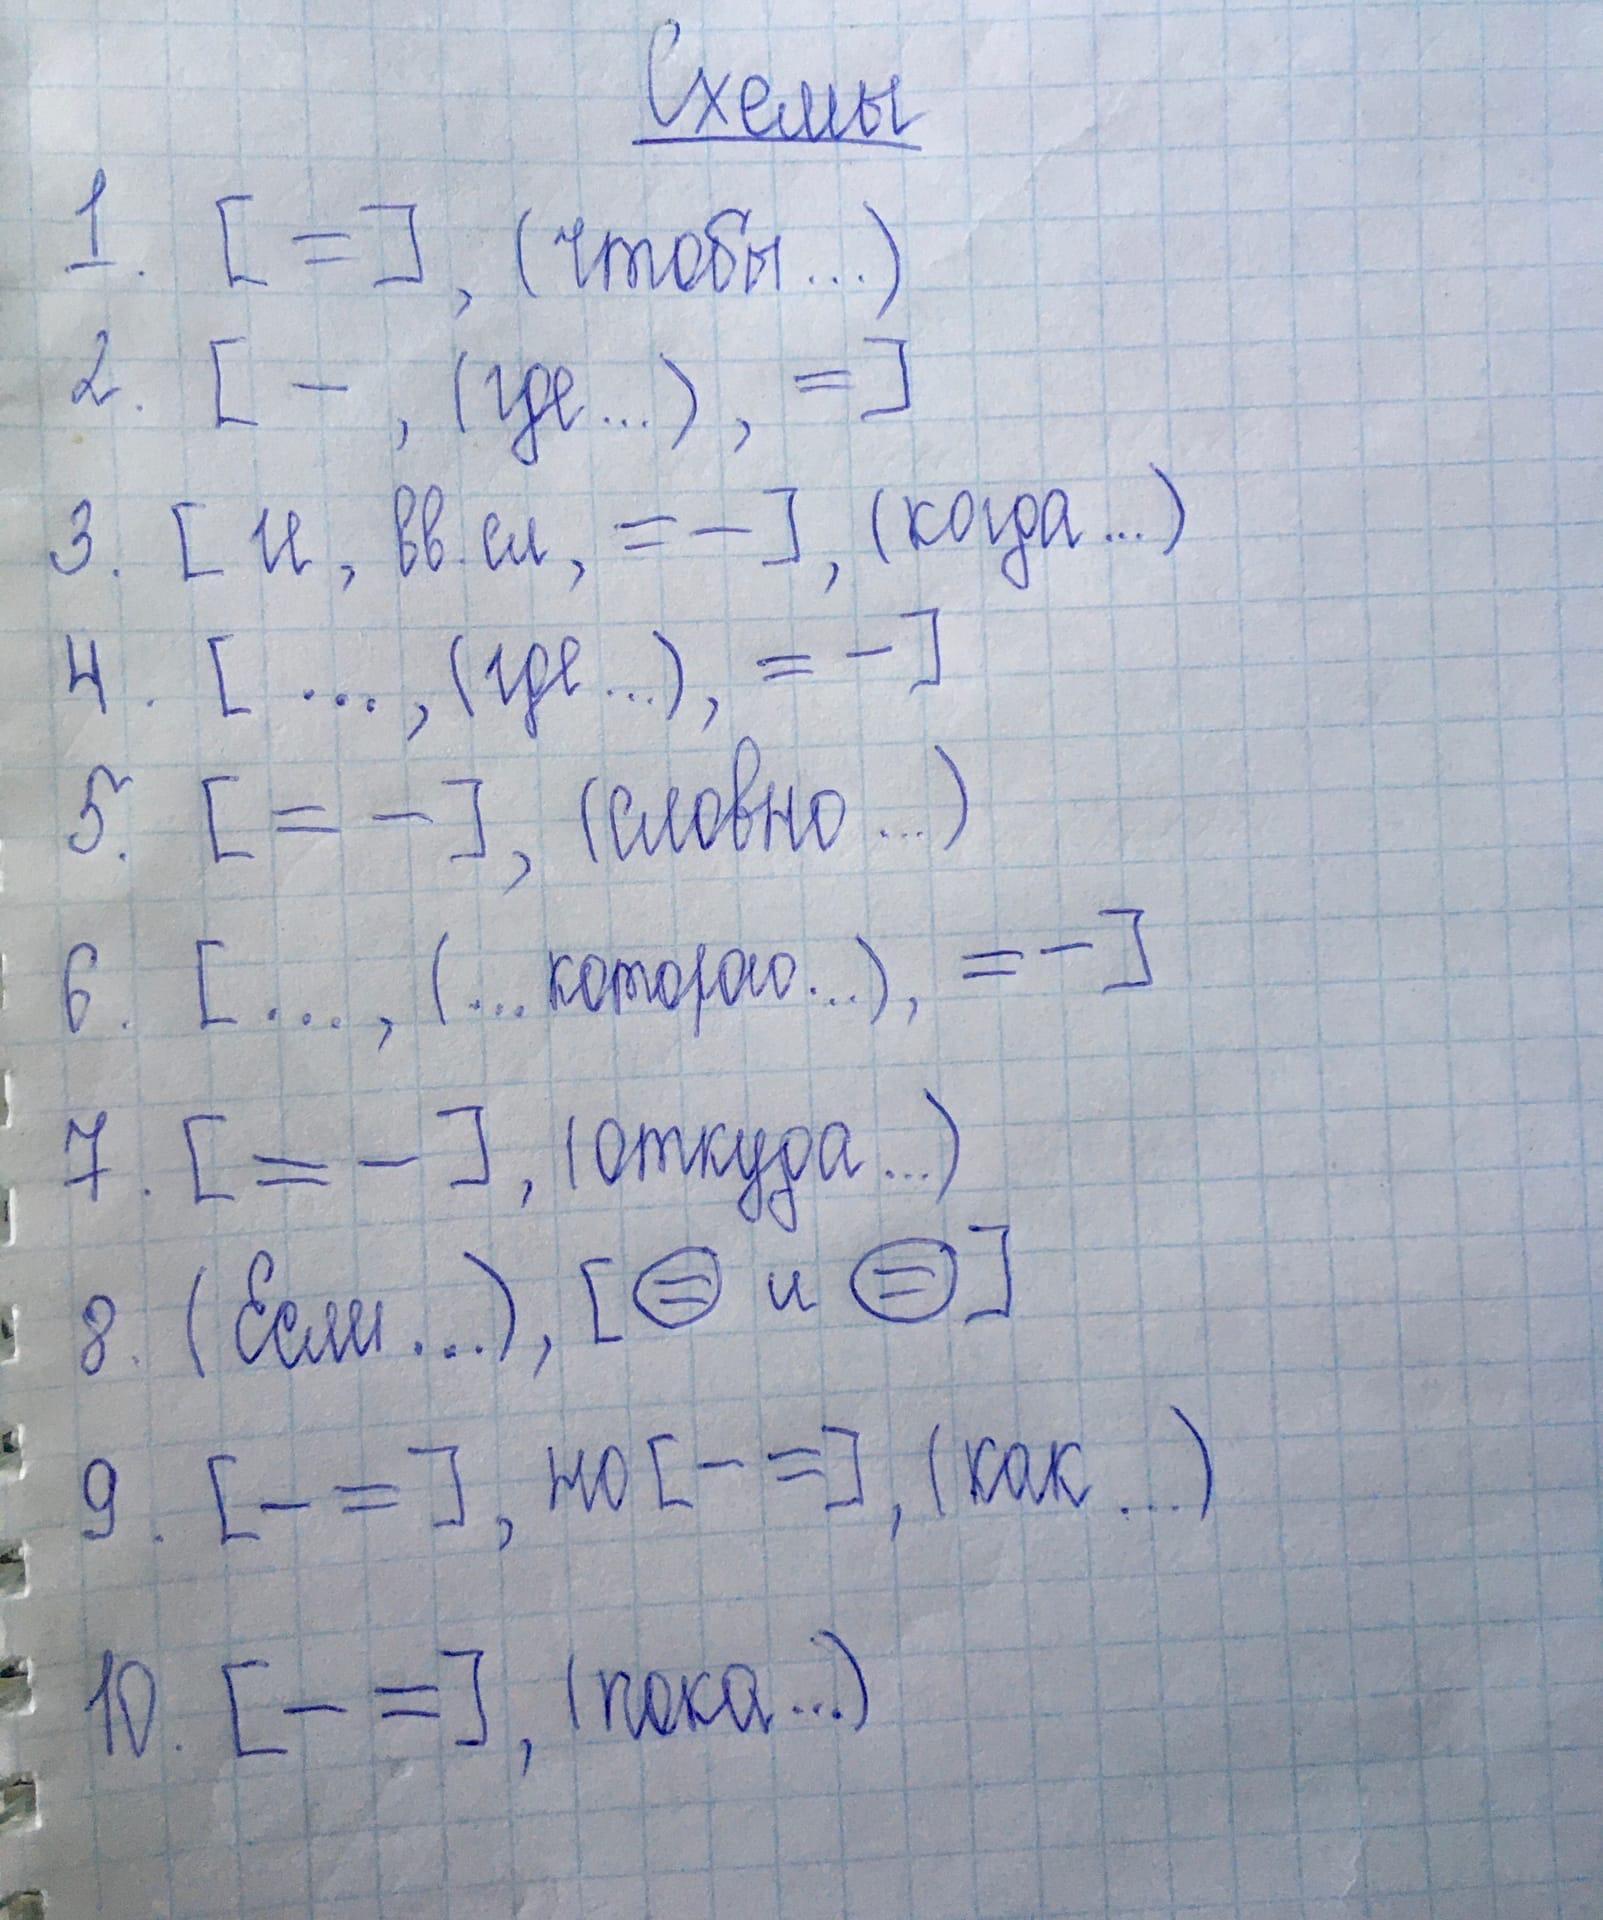 Схемы
1. [ = ], (чтобы...)
2. [ – , (где...), = ]
3. [ и, вв. сл, = – ], (когда...)
4. [ ..., (где...), = – ]
5. [ = – ], (словно...)
6. [ ..., (... которою...), = – ]
7. [ = – ], (откуда...)
8. (Если...), [ = и = ]
9. [ – = ], но [ – = ], (как...)
10. [ – = ], (пока...)